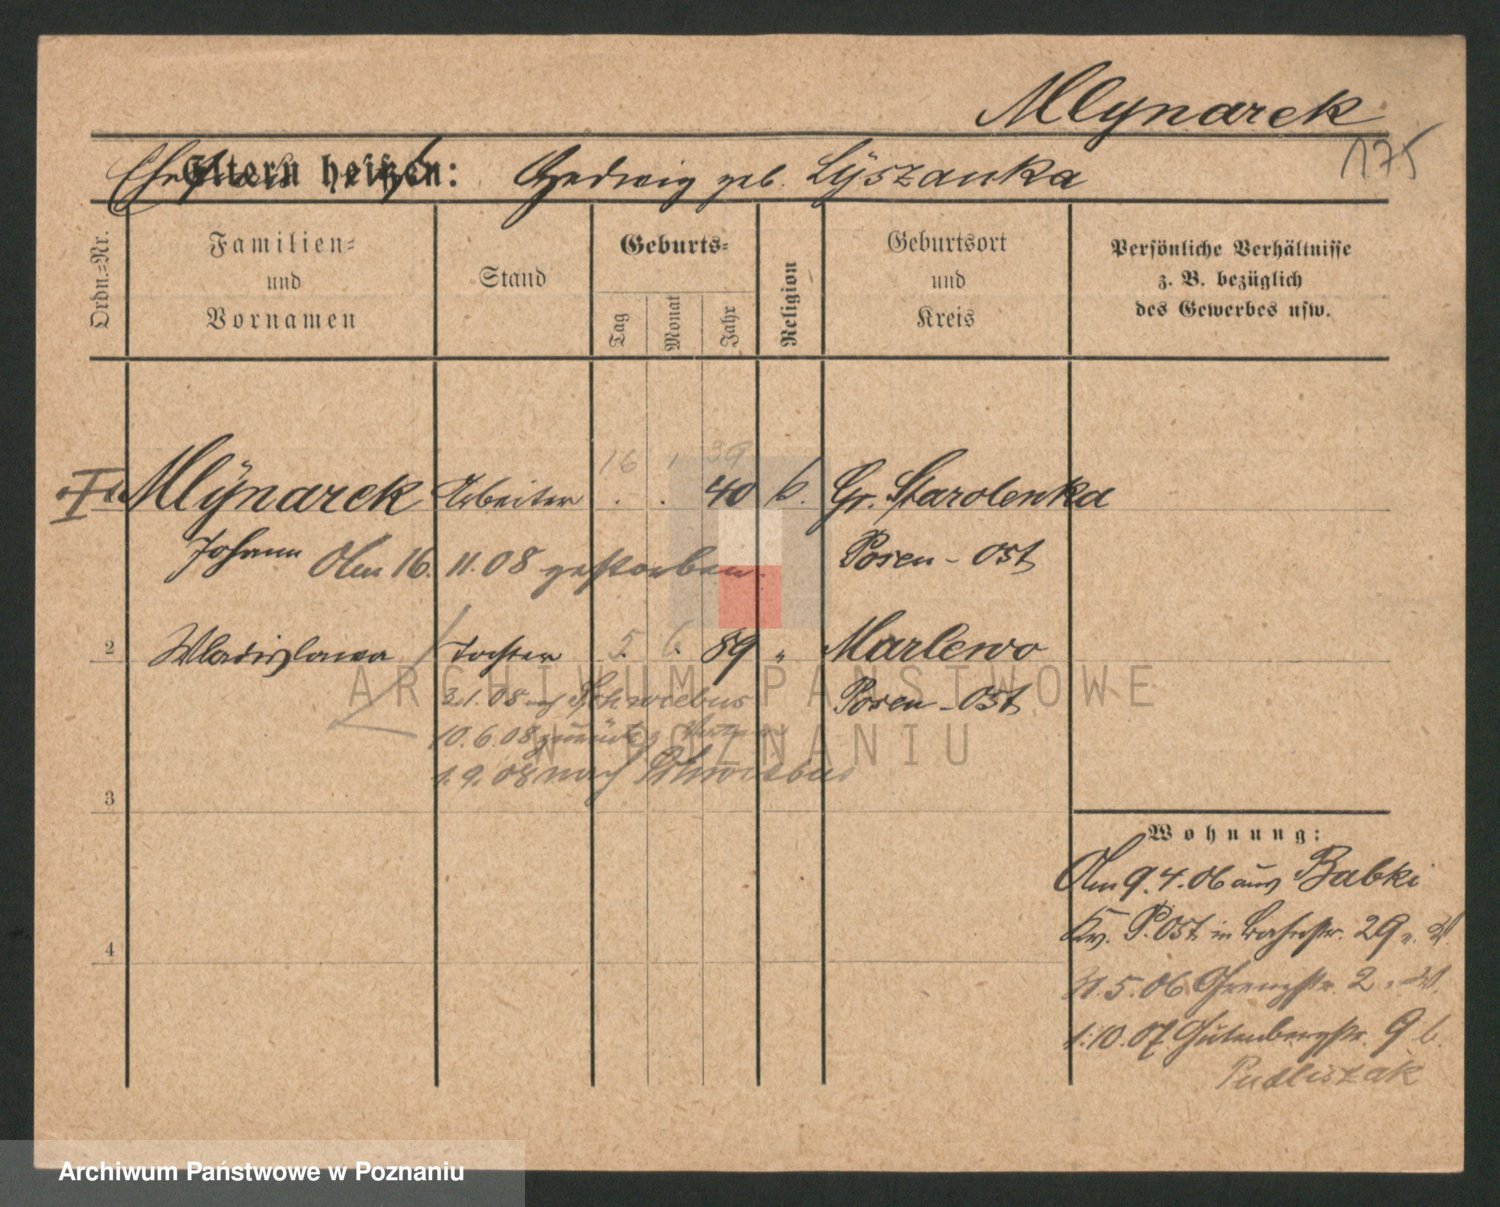 Mlynarek
175
Eltern heißen: Hedwig geb. Lÿszanka
Ordn.=Nr.
Familien=
und
Vornamen
Stand
Geburts=
Tag
Monat
Jahr
Religion
Geburtsort
und
Kreis
Persönliche Verhältnisse
z. B. bezüglich
des Gewerbes usw.
16 1 39
I Mlÿnarek Arbeiter . . 40 k. Gr. Starolenka
Johann Am 16. 11. 08 gestorben. Posen-Ost
2 Wladislawa Tochter 5. 6. 89 " Marlewo
3.1.08 nach Schwiebus Posen-Ost
10.6.08 zurück
1.9.08 nach Schwiebus
3
4
Wohnung:
Am 9.4.06 aus Babki
Kr. P.Ost in Bahnstr. 29
5.06 Grenzstr. 2
1.10.07 Gutenbergstr. 9 b.
Pudliszak
ARCHIWUM PAŃSTWOWE
W POZNANIU
Archiwum Państwowe w Poznaniu